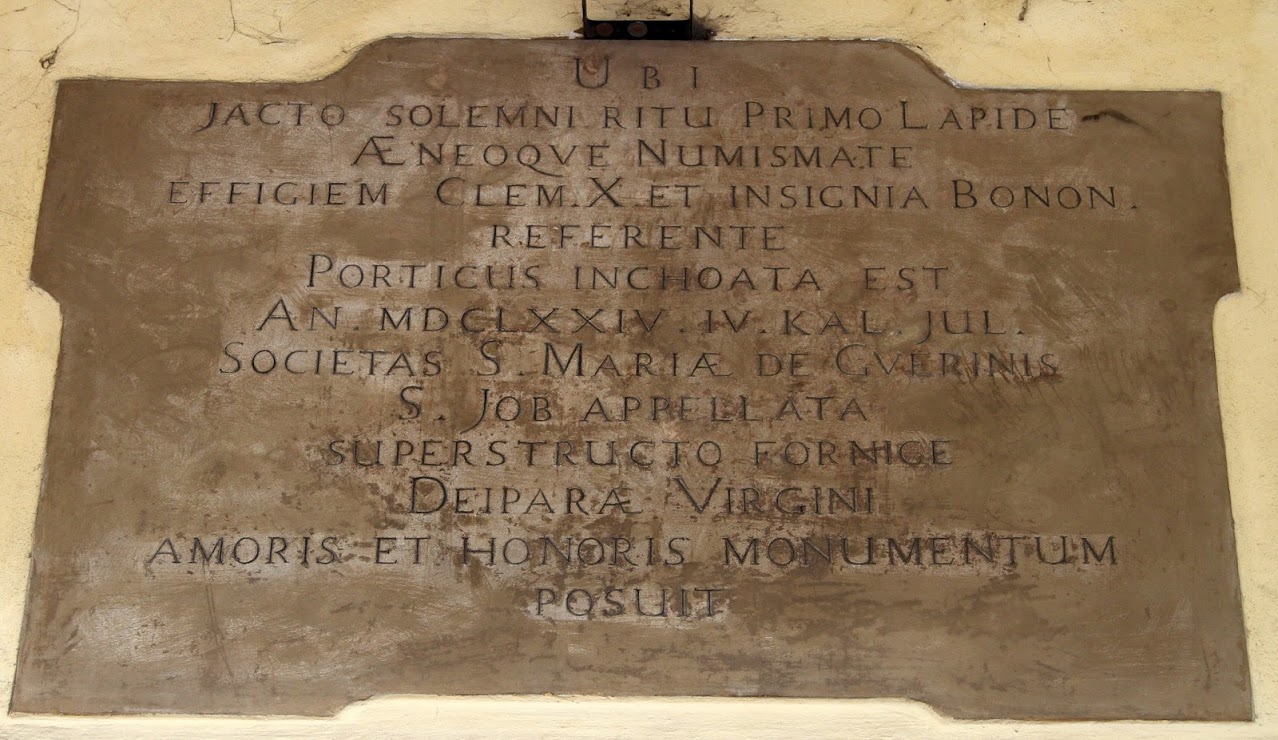 UBI
JACTO SOLEMNI RITU PRIMO LAPIDE
ÆNEOQVE NUMISMATE
EFFIGIEM CLEM. X ET INSIGNIA BONON.
REFERENTE
PORTICUS INCHOATA EST
AN. MDCLXXIV. IV. KAL. JUL.
SOCIETAS S. MARIÆ DE GVERINIS
S. JOB APPELLATA
SUPERSTRUCTO FORNICE
DEIPARÆ VIRGINI
AMORIS ET HONORIS MONUMENTUM
POSUIT